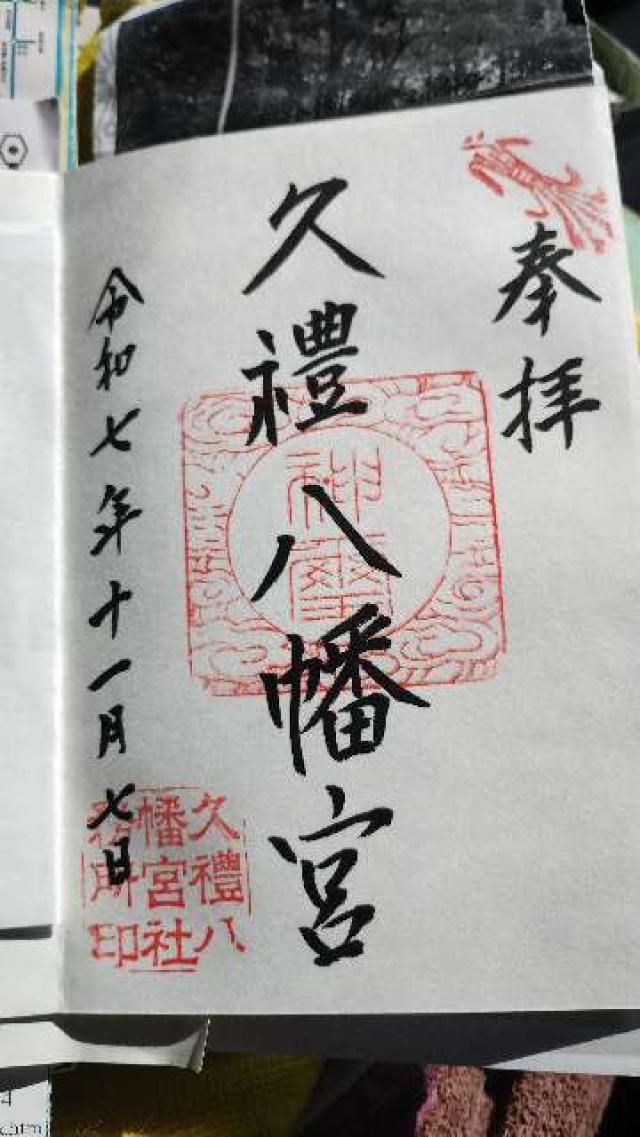 奉拝
久禮八幡宮
御璽
令和七年十一月七日
久禮八
幡宮社
務所印
4